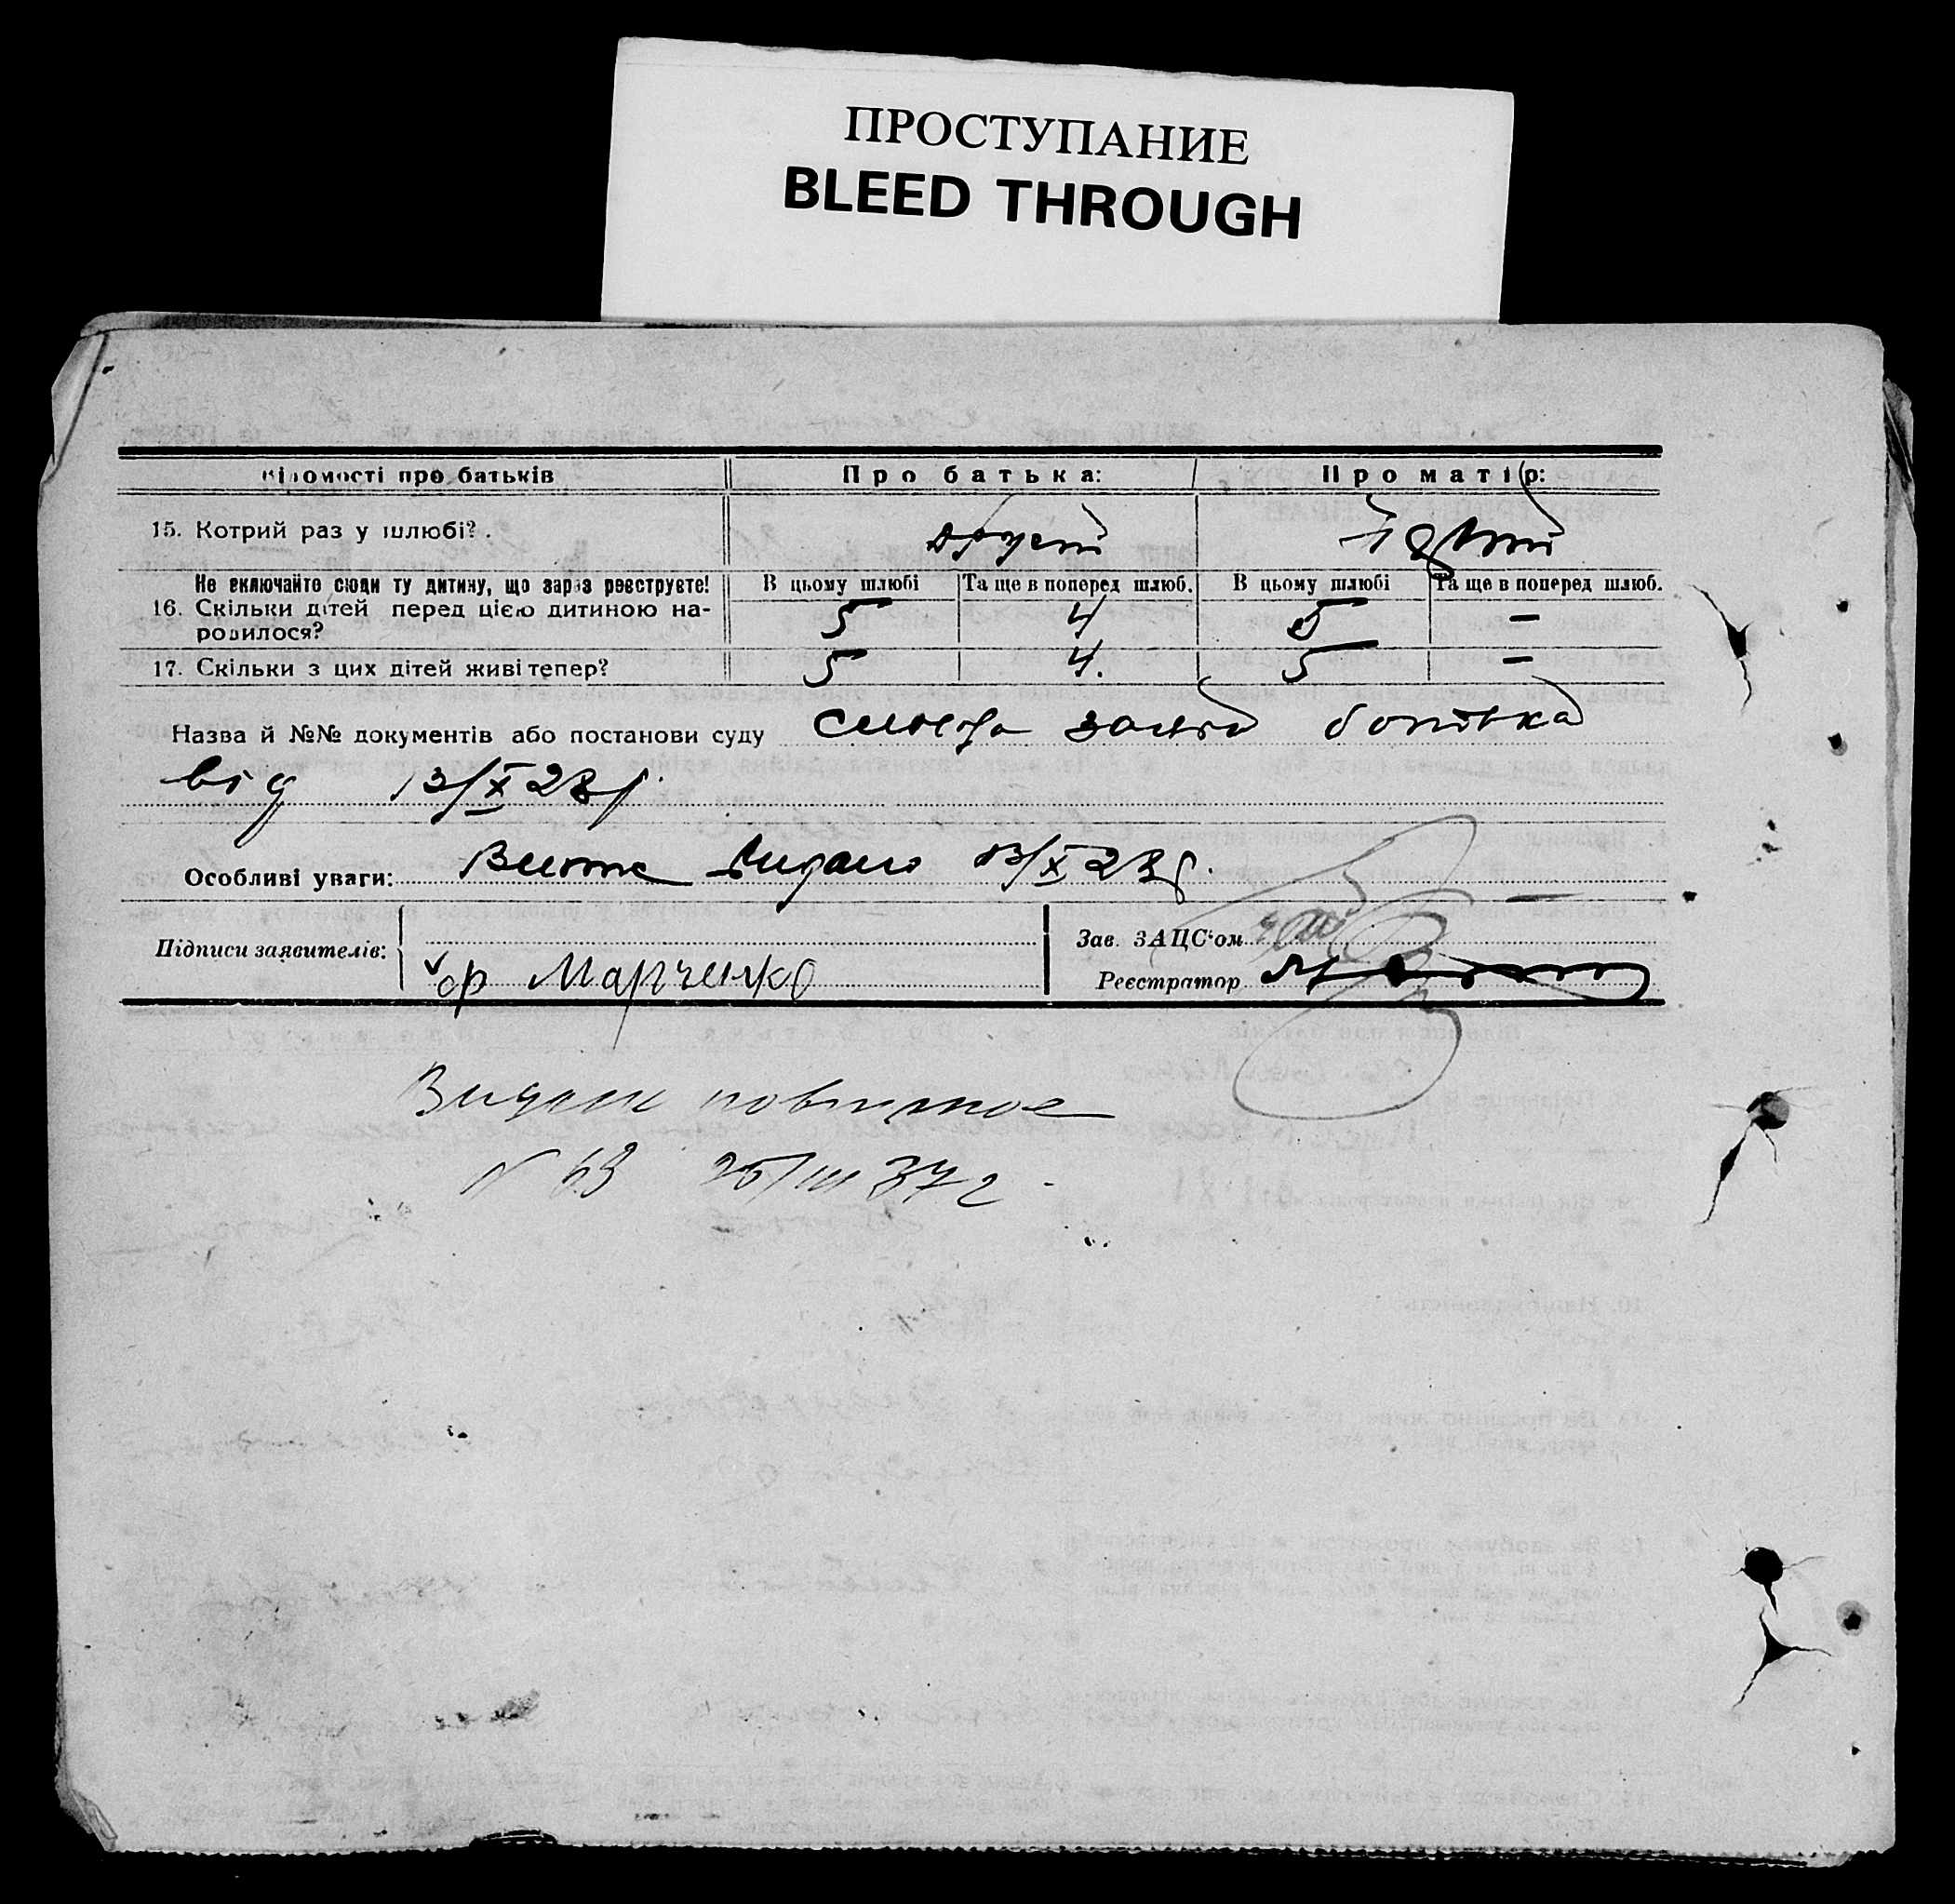 ПРОСТУПАНИЕ
BLEED THROUGH
Відомості про батьків Про батька: Про матір:
15. Котрий раз у шлюбі? другий
Не включайте сюди ту дитину, що зараз реєструєте! В цьому шлюбі Та ще в поперед шлюб. В цьому шлюбі Та ще в поперед шлюб.
16. Скільки дітей перед цією дитиною на-
родилося? 5 4 5 —
17. Скільки з цих дітей живі тепер? 5 4. 5 —
Назва й №№ документів або постанови суду заява батька
від 13/X 28 р.
Особливі уваги: Витяг видано 13/X 28 р.
Підписи заявителів: Зав. ЗАЦС'ом
Марченко Реєстратор
Видано повторное
N 63 25/III 37 г.